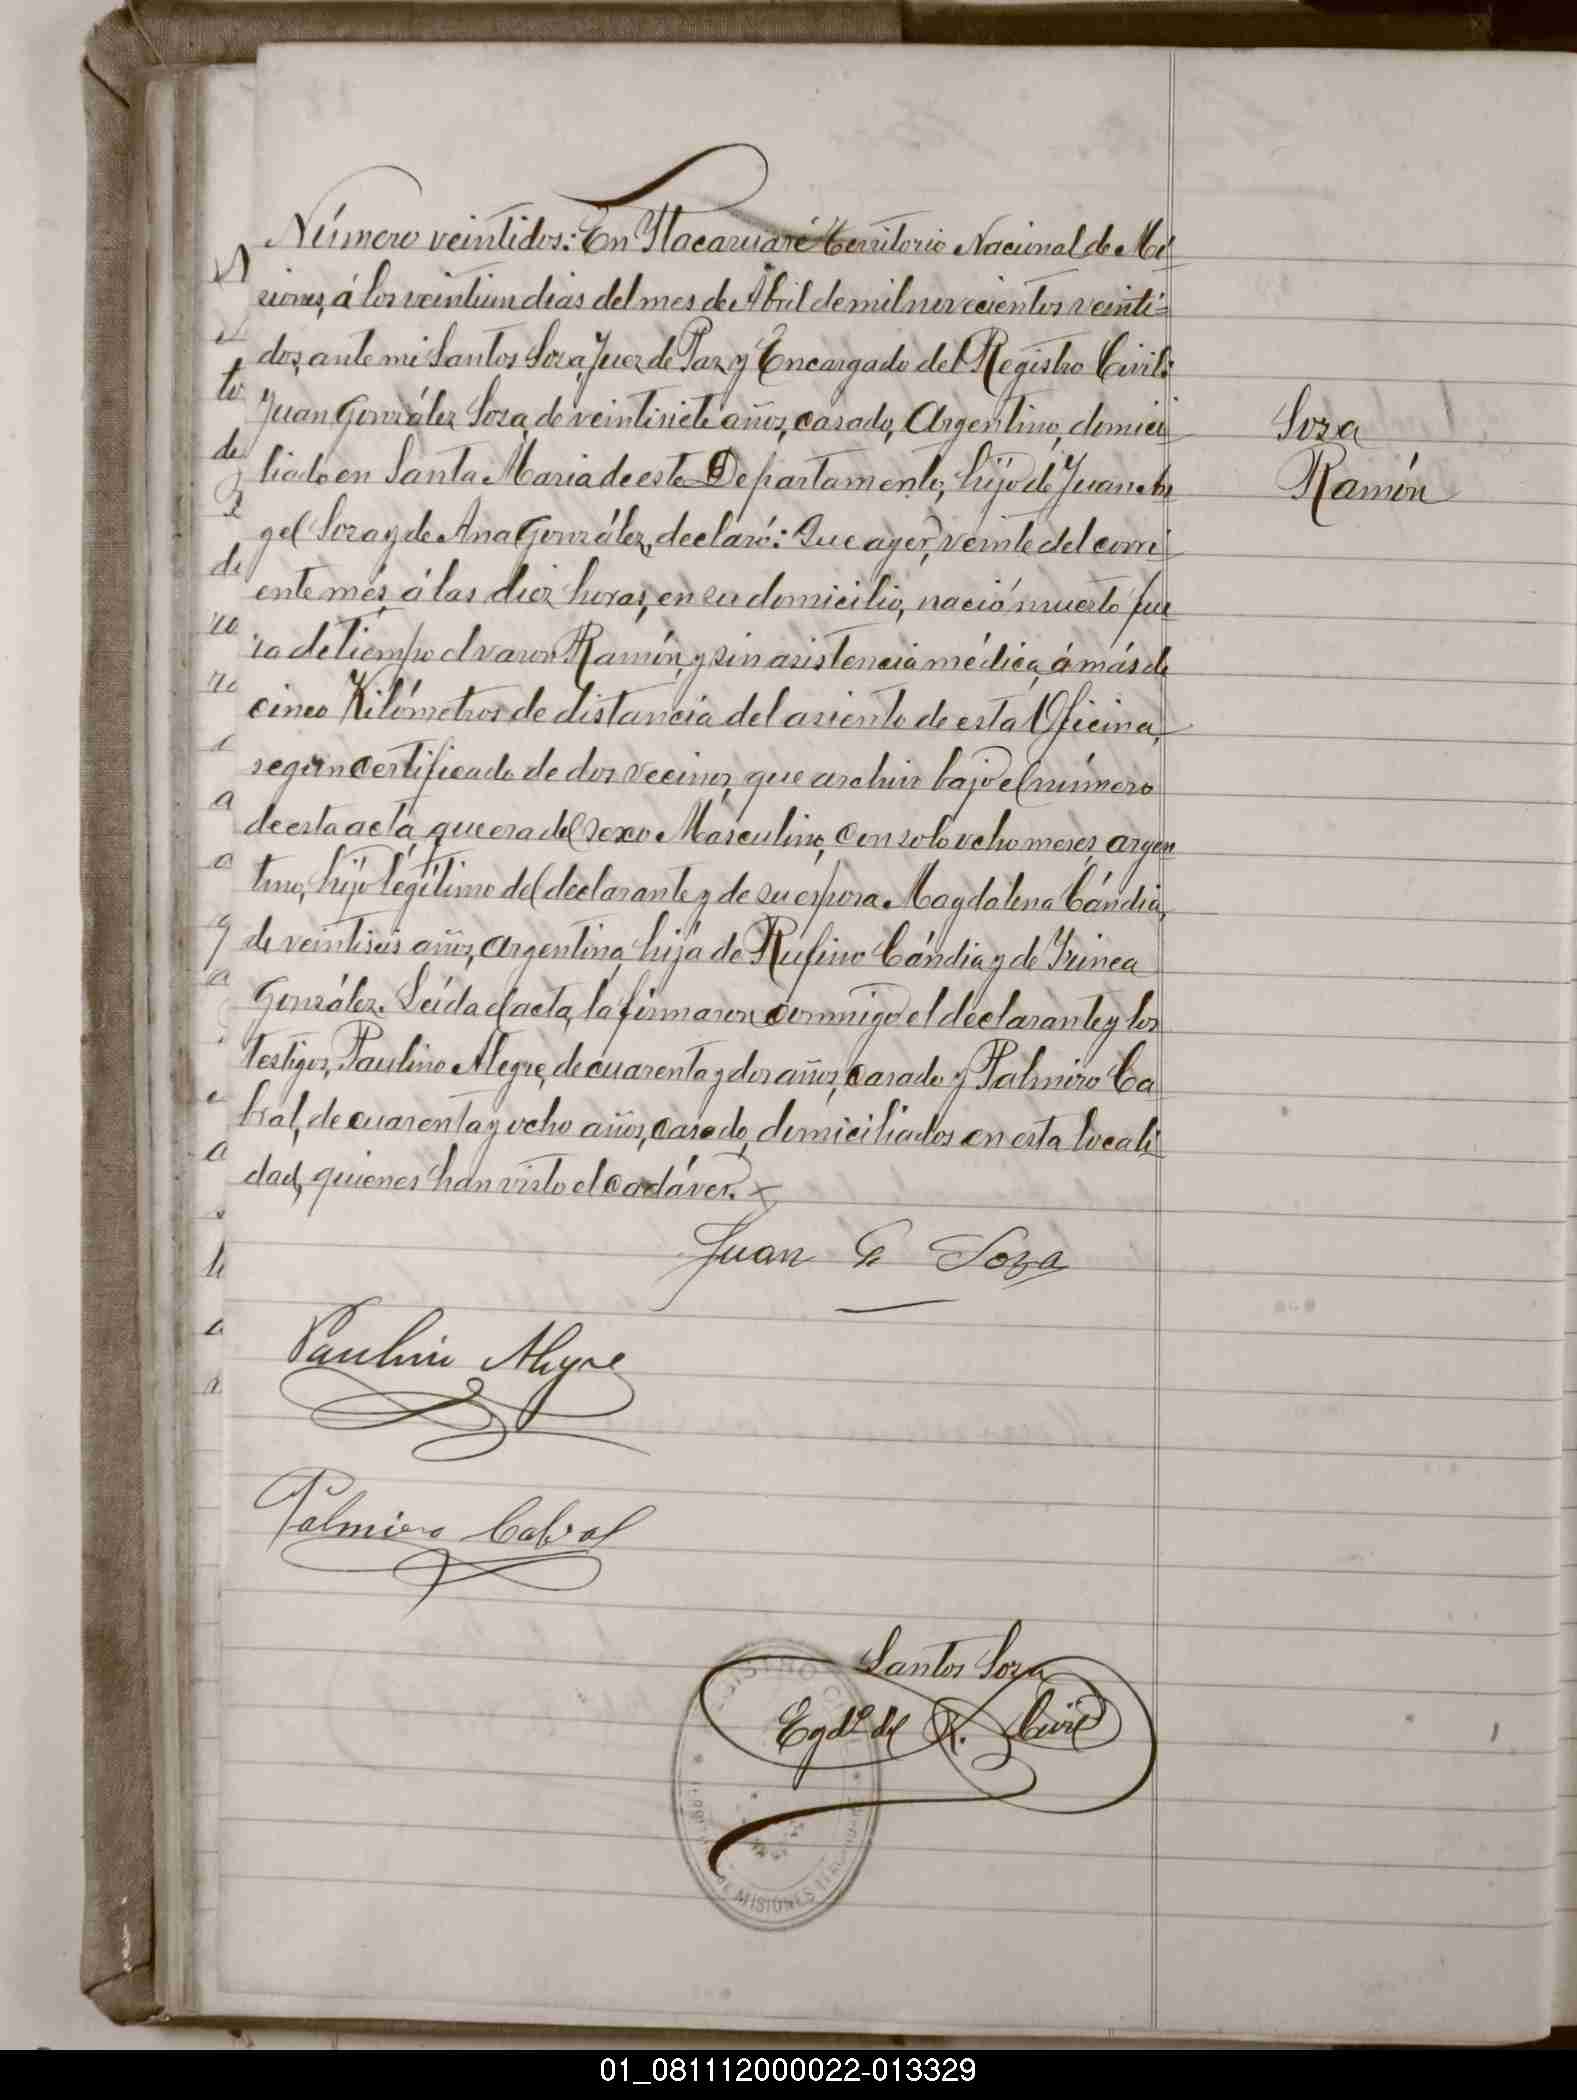 Número veintidos: En Ytacaruaré Territorio Nacional de Mi
siones, á los veintiun dias del mes de Abril de mil novecientos veinti=
dos, ante mi Santos Soza, Juez de Paz y Encargado del Registro Civil:
Juan González Soza, de veintisiete años, casado, Argentino, domici
liado en Santa Maria de este Departamento, hijo de Juan An
gel Soza y de Ana González, declaró: Que ayer, veinte del corri
ente més, á las diez horas, en su domicilio, nació muerto fue
ra de tiempo el varon Ramón, y sin asistencia médica, á más de
cinco Kilómetros de distancia del asiento de esta Oficina,
segun certificado de dos vecinos, que archivo bajo el número
de esta acta, que era del sexo Masculino, con solo ocho meses, argen
tino, hijo legítimo del declarante y de su esposa Magdalena Cándia,
de veintiseis años, argentina, hija de Rufino Cándia y de Yrinea
González. Leída el acta, la firmaron conmigo el declarante y los
testigos, Paulino Alegre, de cuarenta y dos años, casado y Palmiro Ca
bral, de cuarenta y ocho años, casado, domiciliados en esta locali
dad, quienes han visto el cadáver.
Soza
Ramón
Juan G Soza
Paulino Alegre
Palmiro Cabral
Santos Soza
Egdo del R. Civil
DE MISIONES
01_081112000022-013329